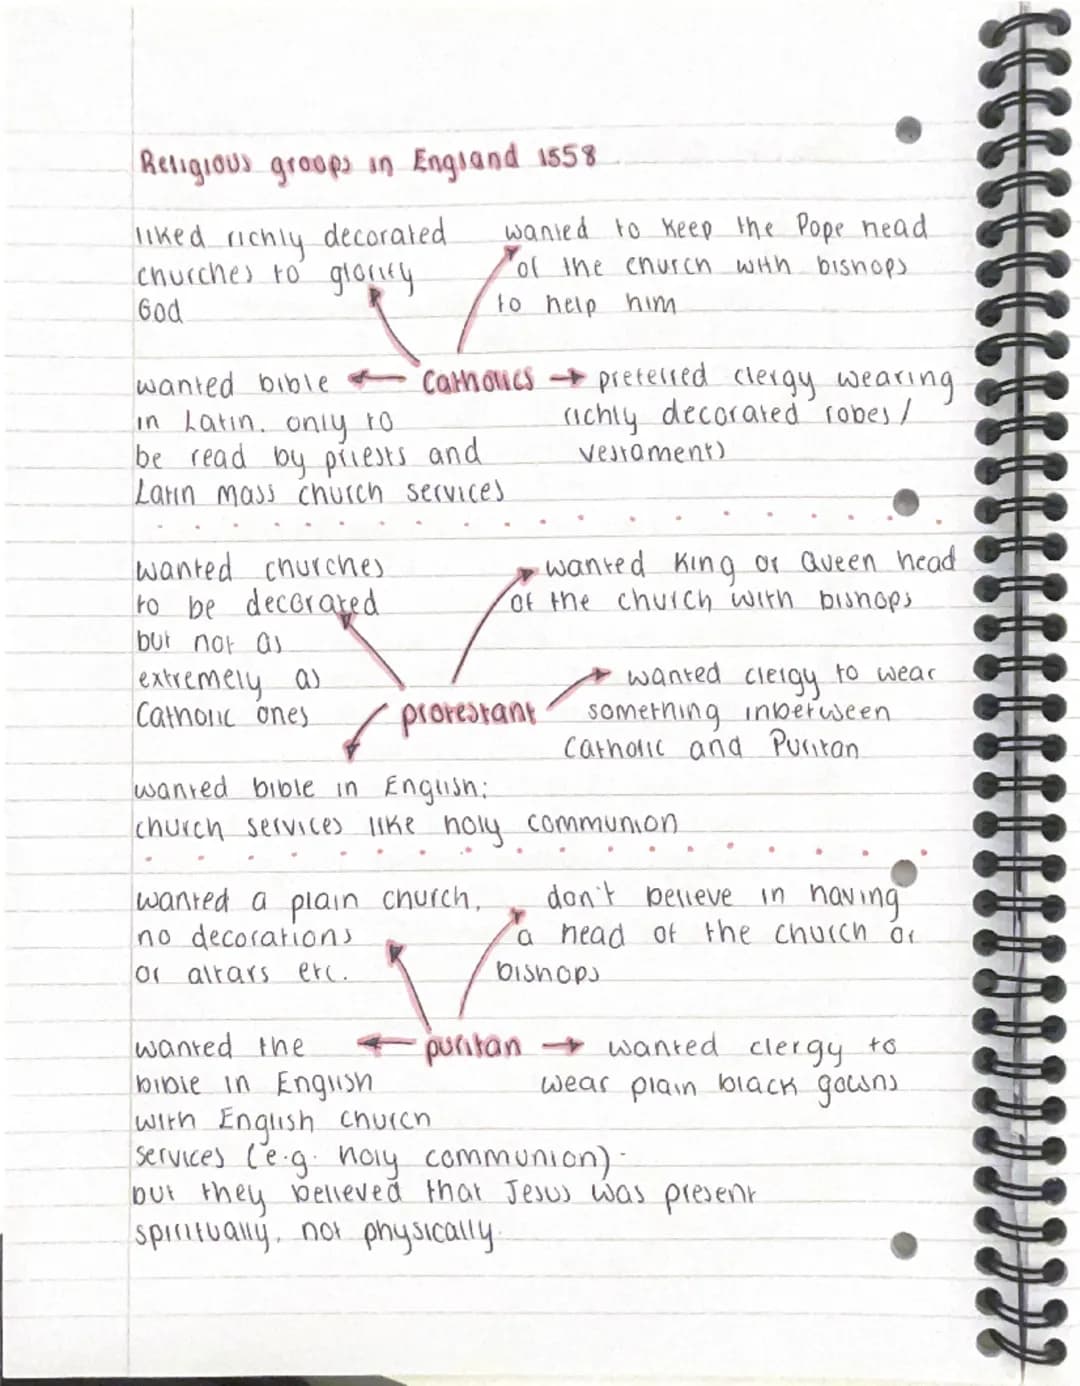 Religious groups in England 1558
liked richly decorated
churches to glorify
God
wanted to keep the Pope head
of the church with bishops
to help him
Catholics
wanted bible
in Latin. only to
be read by priests and
Latin mass church services
preferred clergy wearing
richly decorated robes/
vestaments
wanted churches
to be decorated
but not as
extremely as
Catholic ones
wanted King or Queen head
of the church with bishops
protestant
wanted clergy to wear
something inbetween
Catholic and Puritan
wanted bible in English:
church services like holy communion
wanted a plain church,
no decorations
or altars etc.
don't believe in having
a head of the church or
bishops
puritan
wanted the
bible in English
with English church
services (e.g. holy communion).
but they believed that Jesus was present
spiritually, not physically.
wanted clergy to
wear plain black gowns